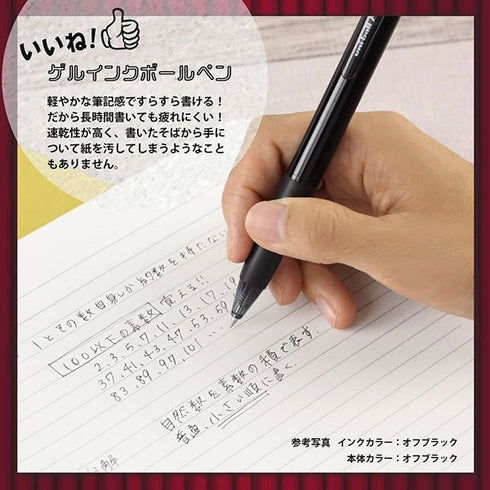 いいね!
ゲルインクボールペン
軽やかな筆記感ですらすら書ける!
だから長時間書いても疲れにくい!
速乾性が高く、書いたそばから手に
ついて紙を汚してしまうようなこと
もありません。
uni-ball
1とその数自身しか約数を持たない
100以下の素数 覚える!!
2.3.5.7.11.13.17.19
37.41.43.47.53.59
83.89.97.101...
自然数を素数の積で表す
普通、小さい順に書く。
解
参考写真 インクカラー:オフブラック
本体カラー:オフブラック